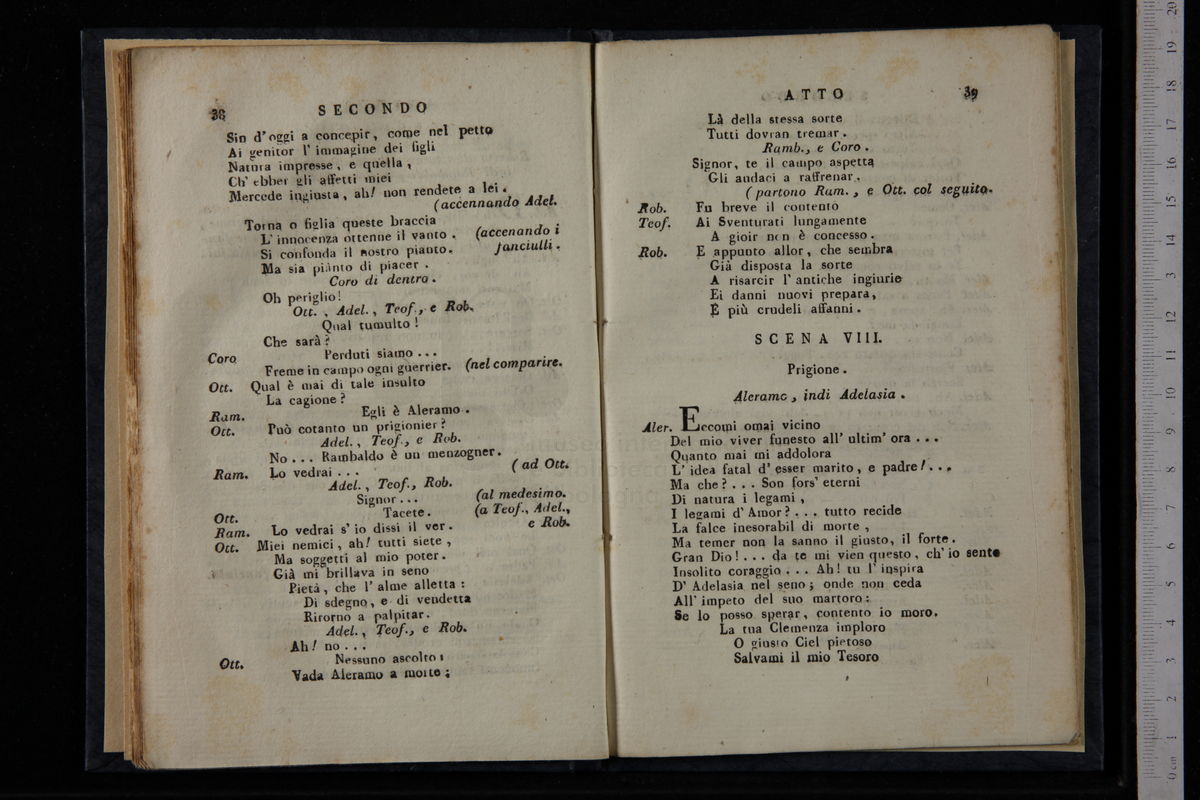 38
SECONDO
Sin d'oggi a concepir, come nel petto
Ai genitor l'immagine dei figli
Natura impresse, e quella,
Ch' ebber gli affetti miei
Mercede ingiusta, ah! non rendete a lei.
(accennando Adel.
Torna o figlia queste braccia
L'innocenza ottenne il vanto. (accenando i
Si confonda il nostro pianto. fanciulli.
Ma sia pianto di piacer.
Coro di dentro.
Oh periglio!
Ott., Adel., Teof., e Rob.
Qual tumulto!
Che sarà?
Coro Perduti siamo...
Freme in campo ogni guerrier. (nel comparire.
Ott. Qual è mai di tale insulto
La cagione?
Ram. Egli è Aleramo.
Ott. Può cotanto un prigionier?
Adel., Teof., e Rob.
No... Rambaldo è un menzogner.
Ram. Lo vedrai... (ad Ott.
Adel., Teof., Rob.
Signor... (al medesimo.
Ott. Tacete. (a Teof., Adel.,
Ram. Lo vedrai s'io dissi il ver. e Rob.
Ott. Miei nemici, ah! tutti siete,
Ma soggetti al mio poter.
Già mi brillava in seno
Pietà, che l'alme alletta:
Di sdegno, e di vendetta
Ritorno a palpitar.
Adel., Teof., e Rob.
Ah! no...
Ott. Nessuno ascolto:
Vada Aleramo a morte;
ATTO
39
Là della stessa sorte
Tutti dovran tremar.
Ramb., e Coro.
Signor, te il campo aspetta
Gli audaci a raffrenar.
(partono Ram., e Ott. col seguito.
Rob. Fu breve il contento
Teof. Ai Sventurati lungamente
A gioir non è concesso.
Rob. E appunto allor, che sembra
Già disposta la sorte
A risarcir l'antiche ingiurie
Ei danni nuovi prepara,
E più crudeli affanni.
SCENA VIII.
Prigione.
Aleramo, indi Adelasia.
Aler. Eccomi omai vicino
Del mio viver funesto all'ultim'ora...
Quanto mai mi addolora
L'idea fatal d'esser marito, e padre!...
Ma che?... Son fors' eterni
Di natura i legami,
I legami d'Amor?... tutto recide
La falce inesorabil di morte,
Ma temer non la sanno il giusto, il forte.
Gran Dio!... da te mi vien questo, ch'io sento
Insolito coraggio... Ah! tu l'inspira
D'Adelasia nel seno; onde non ceda
All'impeto del suo martoro:
Se lo posso sperar, contento io moro.
La tua Clemenza imploro
O giusto Ciel pietoso
Salvami il mio Tesoro
0 cm 1 2 3 4 5 6 7 8 9 10 11 12 13 14 15 16 17 18 19 20